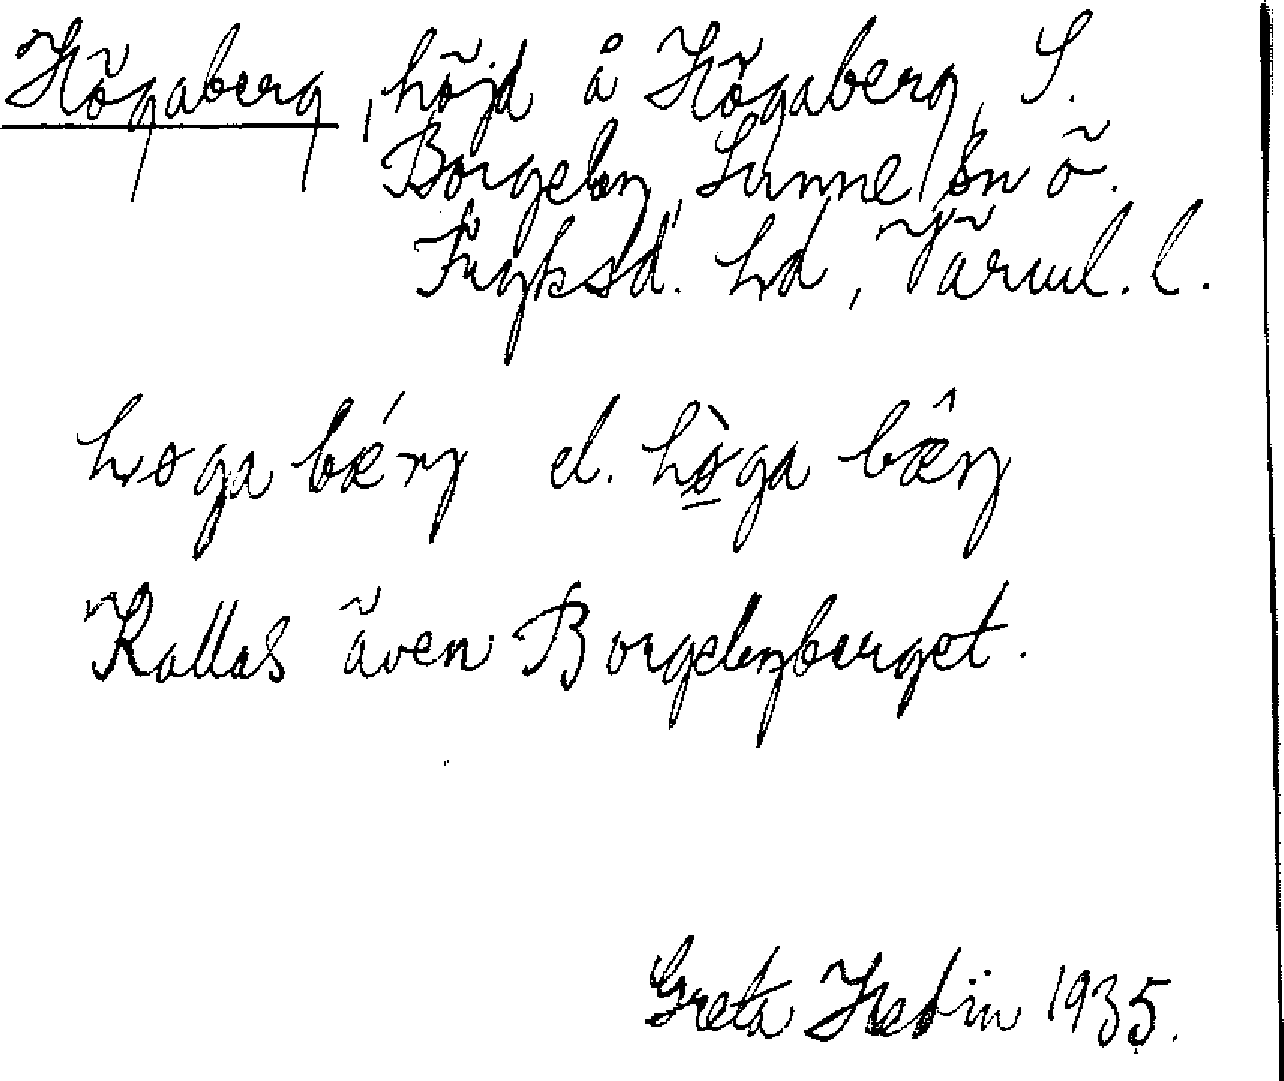 Högaberg, höjd å Högaberg, S.
Borgeby, Sunne sn ö.
Fryksd. hd, Värml. l.
høga bǽrj el. hø̀ga bæ̂rj
Kallas även Borgebyberget.
Greta Hedin 1935.